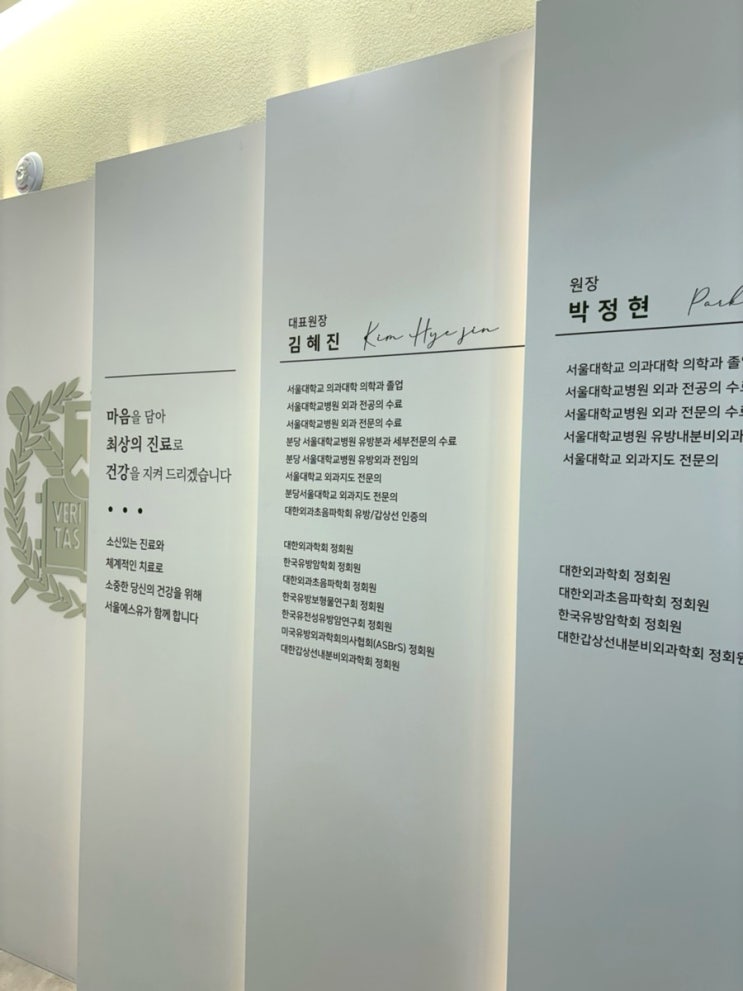 VERI
TAS
마음을 담아
최상의 진료로
건강을 지켜 드리겠습니다
• • •
소신있는 진료와
체계적인 치료로
소중한 당신의 건강을 위해
서울에스유가 함께 합니다
대표원장
김혜진 Kim Hyejin
서울대학교 의과대학 의학과 졸업
서울대학교병원 외과 전공의 수료
서울대학교병원 외과 전문의 수료
분당 서울대학교병원 유방분과 세부전문의 수료
분당 서울대학교병원 유방외과 전임의
서울대학교 외과지도 전문의
분당서울대학교 외과지도 전문의
대한외과초음파학회 유방/갑상선 인증의
대한외과학회 정회원
한국유방암학회 정회원
대한외과초음파학회 정회원
한국유방보형물연구회 정회원
한국유전성유방암연구회 정회원
미국유방외과학회의사협회(ASBrS) 정회원
대한갑상선내분비외과학회 정회원
원장
박정현 Park
서울대학교 의과대학 의학과 졸
서울대학교병원 외과 전공의 수
서울대학교병원 외과 전문의 수
서울대학교병원 유방내분비외과
서울대학교 외과지도 전문의
대한외과학회 정회원
대한외과초음파학회 정회원
한국유방암학회 정회원
대한갑상선내분비외과학회 정회원